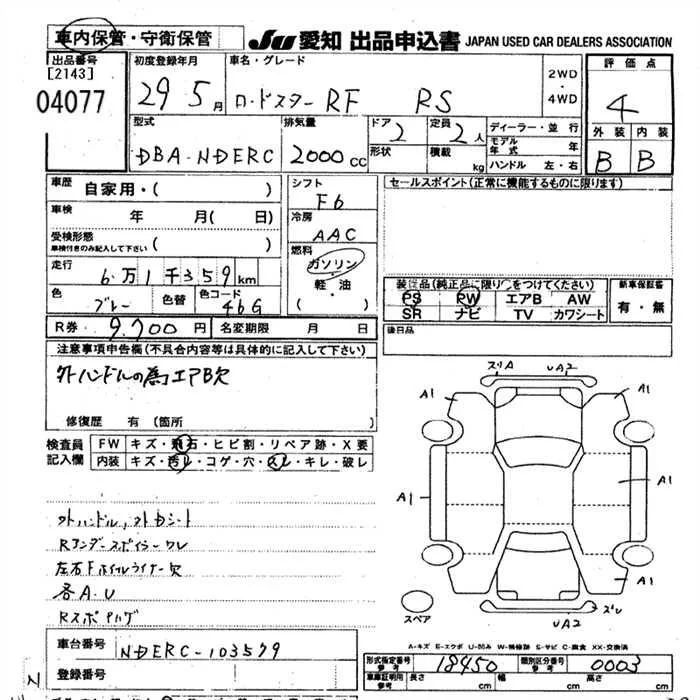 車内保管・守衛保管
JU 愛知 出品申込書 JAPAN USED CAR DEALERS ASSOCIATION
出品番号
[2143]
04077
初度登録年月
29 5月
車名・グレード
ロードスターRF RS
2WD
・
4WD
評価点
4
外装 内装
B B
型式
DBA-NDERC
排気量
2000cc
ドア 2
形状
定員 2人
積載 kg
ディーラー・並行
モデル年式 年
ハンドル 左・右
車歴 自家用・( )
車検 年 月( 日)
受検形態
車検付きのみ記入して下さい ( )
走行 6万1千359km
色 ブルー 色替 色コード 46G
R券 9,700円 名変期限 月 日
シフト
F6
冷房
AAC
燃料
ガソリン
・
軽・油
( )
セールスポイント(正常に機能するものに限ります)
装備品(純正品に限り○をつけてください)
PS PW エアB AW
SR ナビ TV カワシート
新車保証書
有・無
後日品
注意事項申告欄(不具合内容等は具体的に記入して下さい)
外ハンドルの為エアB欠
修復歴 有(箇所 )
検査員
記入欄
FW キズ・飛石・ヒビ割・リペア跡・X要
内装 キズ・汚レ・コゲ・穴・スレ・キレ・破レ
外ハンドル,外Dシート
Rアンダースポイラーワレ
左右Fホイルライナー欠
各A.U
Rスポイハゲ
車台番号 NDERC-103579
登録番号
スリA UA2
A1 A1
A1 A1
A1 A1
スレ
UA2
スペア
A-キズ E-エクボ U-凹み W-補修跡 S-サビ C-腐食 XX-交換済
形式指定番号
参考
18450
類別区分番号
参考
0003
車庫証明用
参考
長さ cm 幅 cm 高さ cm